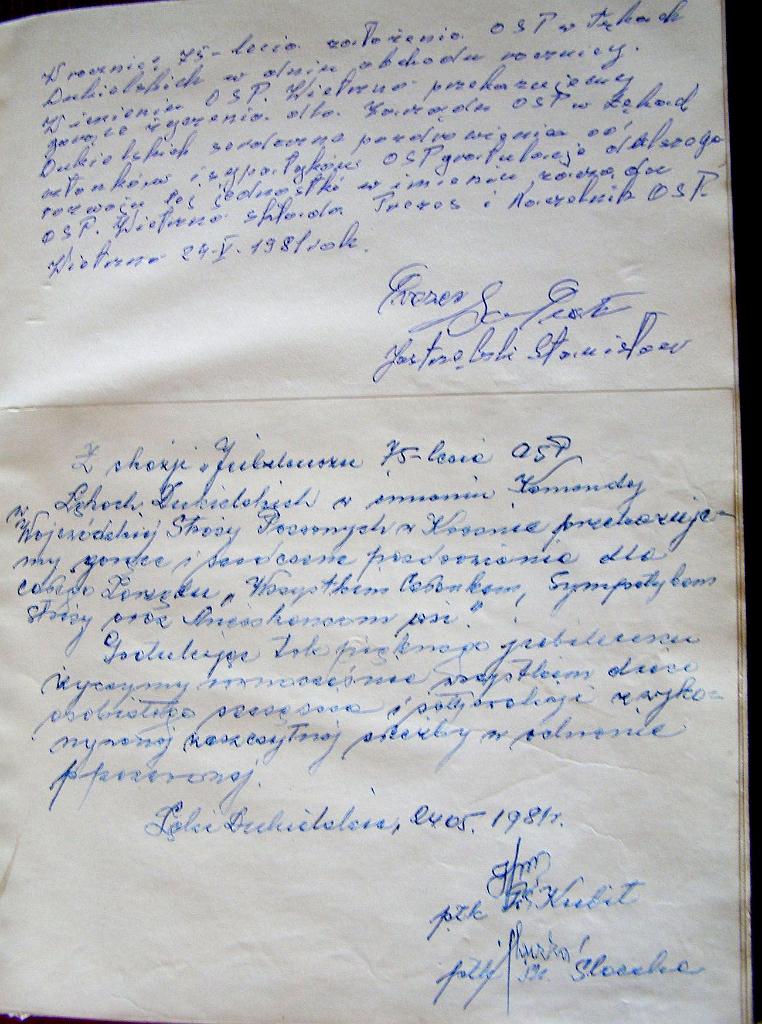 W rocznicę 75-lecia założenia OSP w Łękach
Dukielskich w dniu obchodu rocznicy.
W imieniu OSP. Wietrzno przekazujemy
gorące życzenia dla Zarządu OSP w Łękach
Dukielskich serdeczne pozdrowienia od
członków i sypatyków OSP gratulacje dalszego
rozwoju tej jednostki w imieniu zarządu
OSP. Wietrzno składa Prezes i Naczelnik OSP.
Wietrzno 24-V-1981 rok.
Prezes
Jastrzębski Stanisław
Z okazji "Jubileuszu 75-lecia OSP
w Łękach Dukielskich w imieniu Komendy
Wojewódzkiej Straży Pożarnych w Krośnie przekazuje-
my gorące i serdeczne pozdrowienia dla
całego Zarządu, Wszystkim Członkom, Sympatykom
Straży oraz Mieszkańcom wsi."
Gratulując tak pięknego jubileuszu
życzymy równocześnie wszystkim dużo
osobistego szczęścia i satysfakcji z wyko-
nywanej zaszczytnej służby w ochronie
p.pożarowej.
Łęki Dukielskie, 24.05.1981r.
płk Kubit
Słoczka